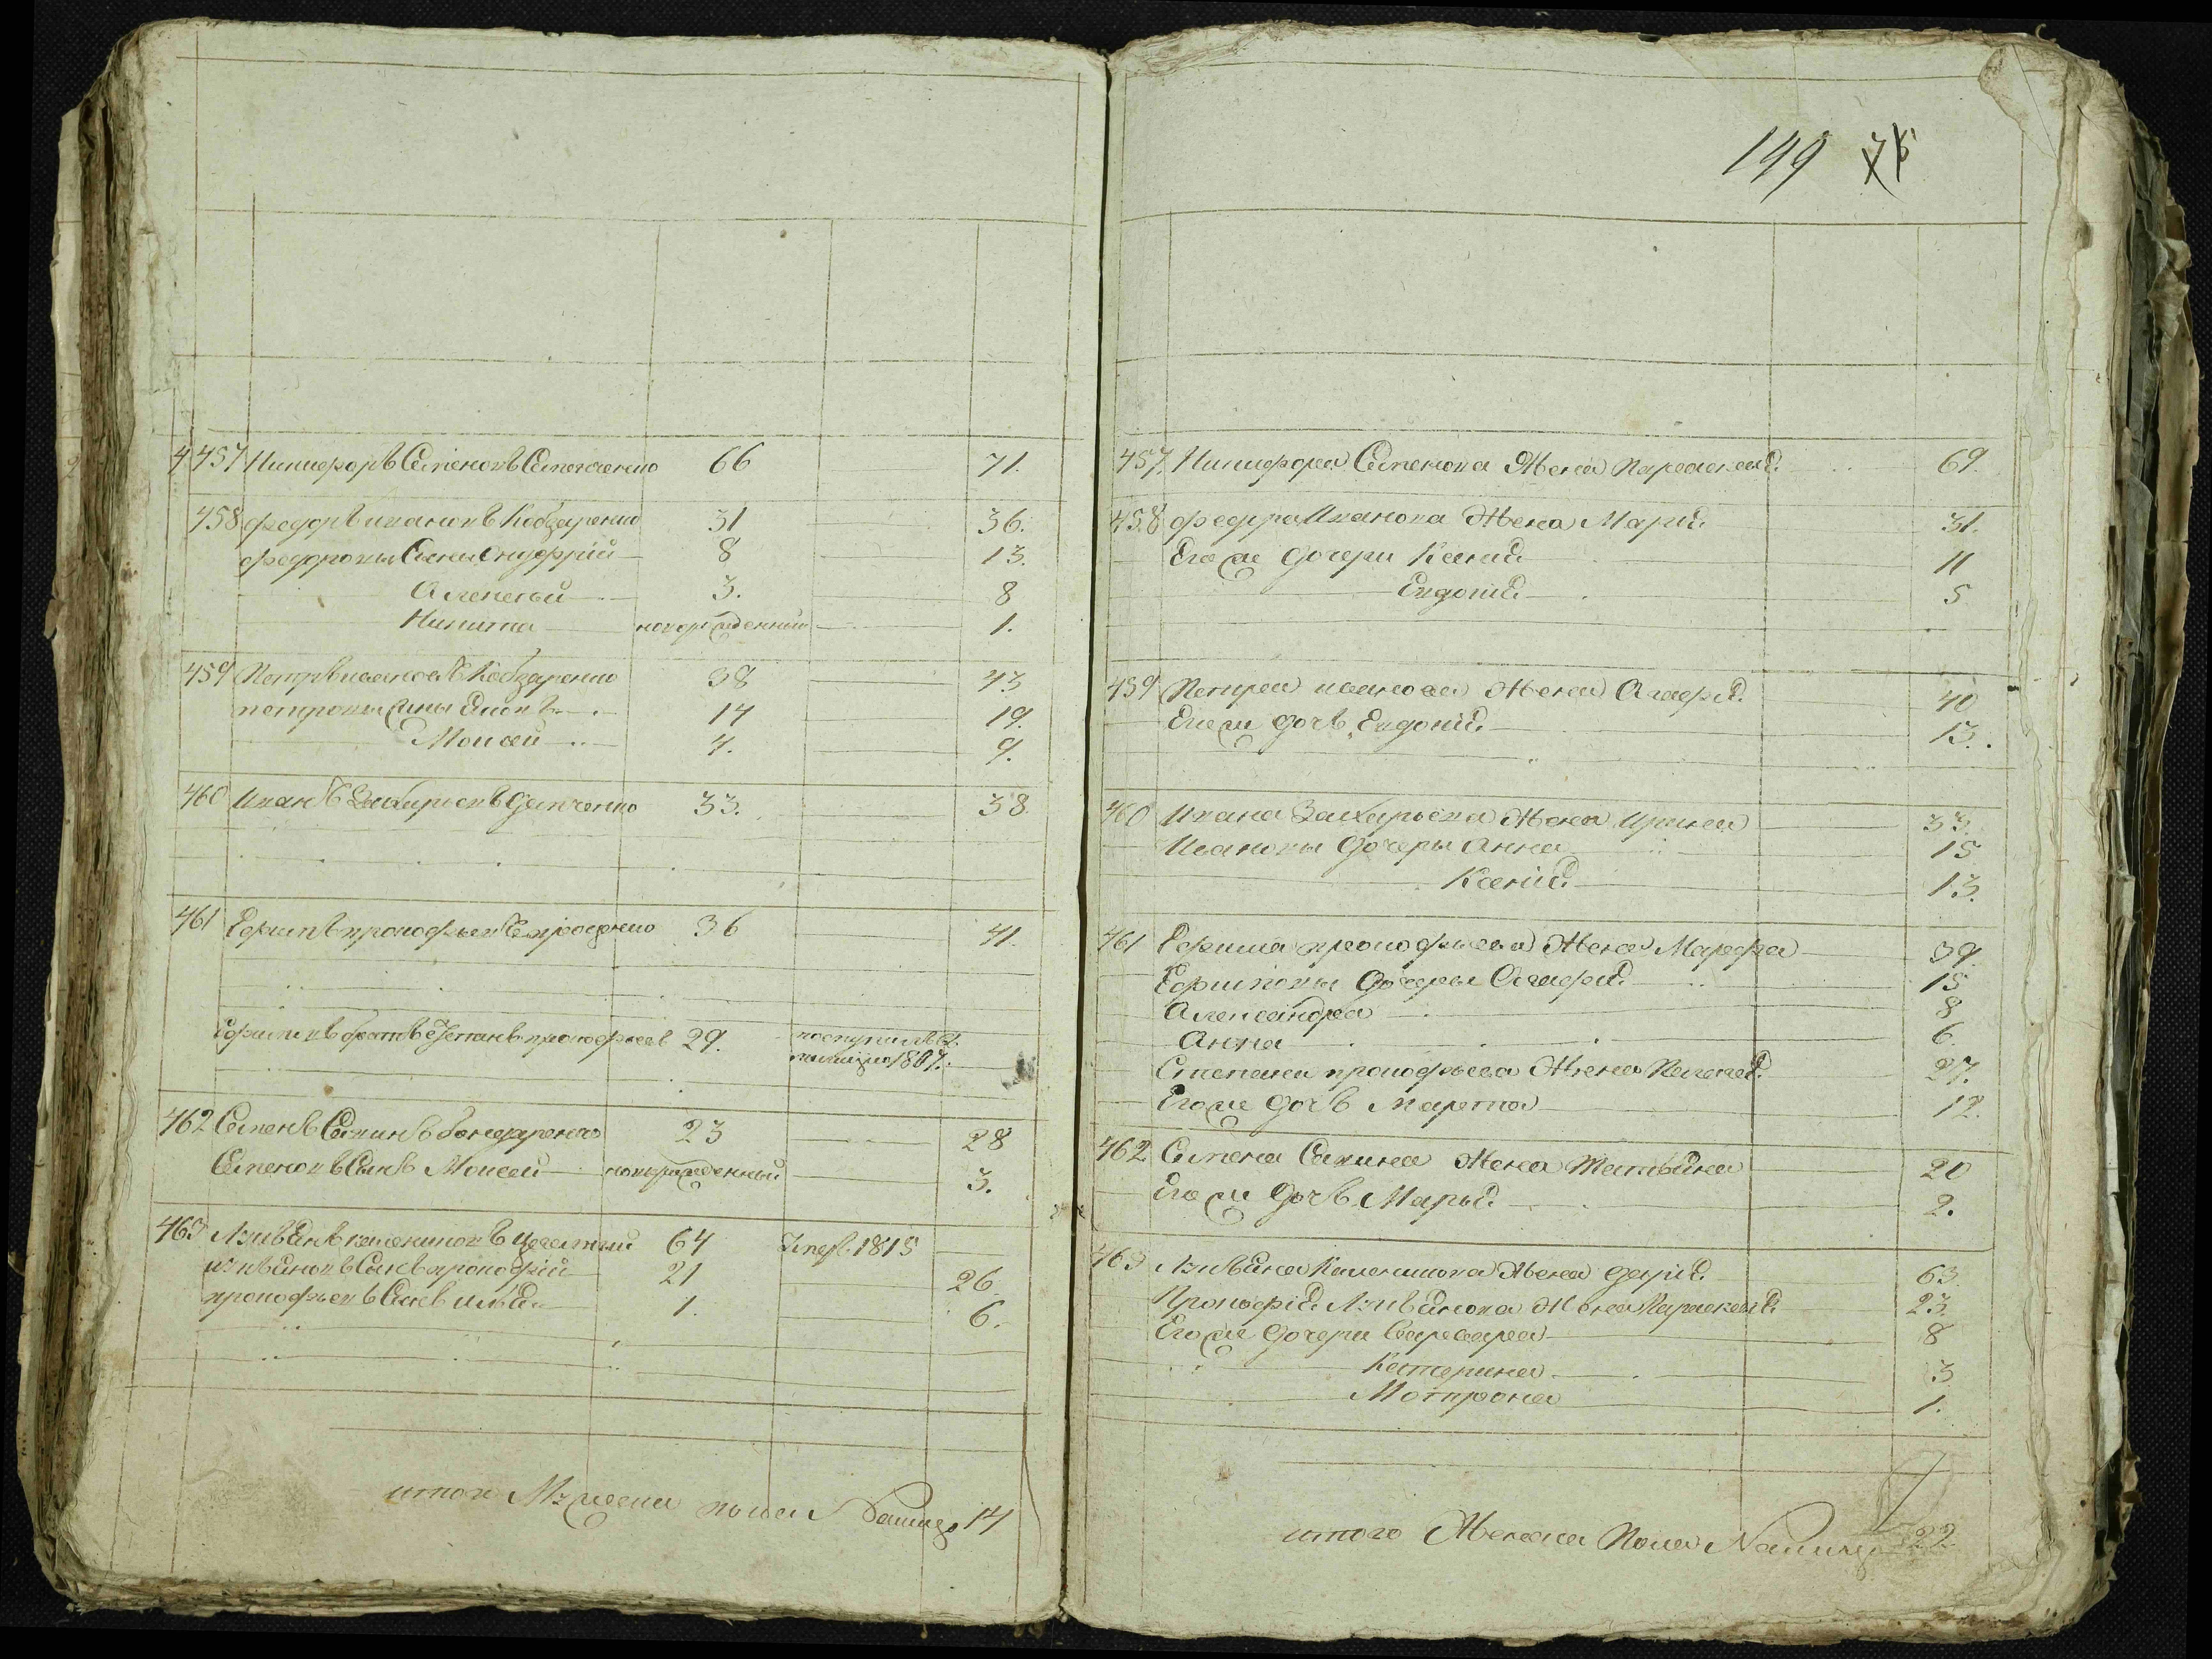 457 Никифоръ Семеновъ 66 71.
458 Федоръ Ивановъ Кобзаренко 31 36.
Федоровы Сыны Онуфрій 8 13.
Алексѣй 3. 8
Никита новорожденный 1.
459 Петръ Ивановъ Кобзаренко 38 43
Петровы Сыны 14 19.
Моисей 4. 9.
460 Иванъ Захарьевъ 33. 38
461 Ефимъ Прокофьевъ 36 41.
Ефимовъ братъ Степанъ Прокофьевъ 29. 1807.
462 Семенъ Савинъ Бондаренко 23 28
Семеновъ Сынъ Моисей новорожденный 3.
463 64 Умеръ 1815
Сынъ Прокофій 21 26.
Прокофьевъ Сынъ Илья 1. 6.
итого Мужеска пола Налицо 14
149 75
457. Никифора Семенова Жена Параскевія 69.
458 Федора Иванова Жена Марія 31.
Его же дочери Ксенія 11
Евдокія 5
459 Петра Иванова Жена Агафія 40
Его же дочь Евдокія 13.
460 Ивана Захарьева Жена Ирина 33.
Ивановы дочери Анна 15
Ксенія 13.
461 Ефима Прокофьева Жена Марфа 39.
Ефимовы дочери Агафія 15
Александра 8
Анна 6
Степана Прокофьева Жена Пелагея 27.
Его же дочь Марфа 12.
462 Семена Савина Жена Татьяна 20
Его же дочь Марья 2.
463 Жена Дарія 63
Прокофія Жена Параскевія 23.
Его же дочери Варвара 8
Катерина 3
Мотрона 1.
итого Женска Пола Налицо 22